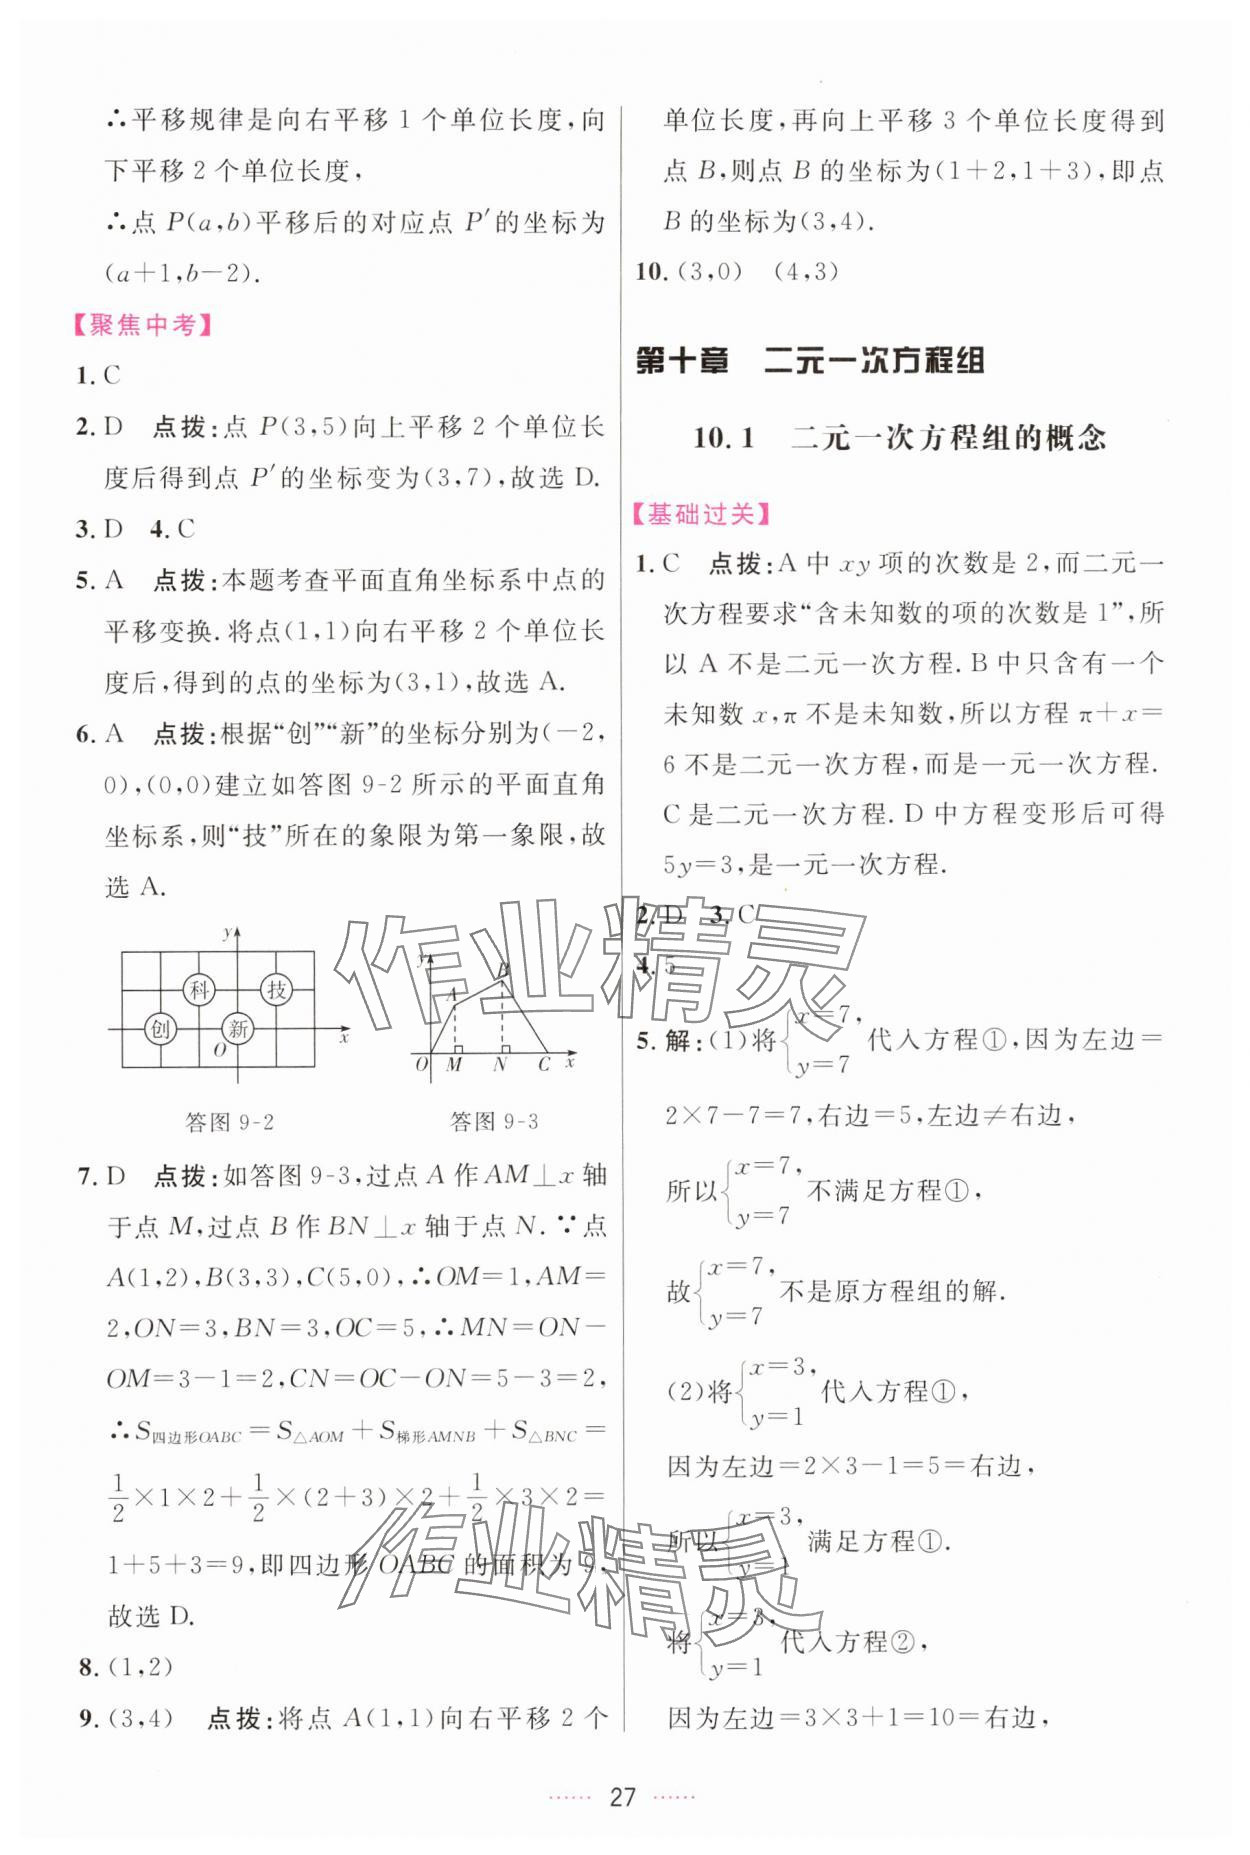 ∴平移规律是向右平移 1 个单位长度,向
下平移 2 个单位长度,
∴点 P(a,b)平移后的对应点 P′的坐标为
(a+1,b-2).
【聚焦中考】
1. C
2. D 点拨:点 P(3,5)向上平移 2 个单位长
度后得到点 P′的坐标变为(3,7),故选 D.
3. D 4. C
5. A 点拨:本题考查平面直角坐标系中点的
平移变换.将点(1,1)向右平移 2 个单位长
度后,得到的点的坐标为(3,1),故选 A.
6. A 点拨:根据“创”“新”的坐标分别为(-2,
0),(0,0)建立如答图 9-2 所示的平面直角
坐标系,则“技”所在的象限为第一象限,故
选 A.
y
科 技
创 新
O x
答图 9-2
y
A B
O M N C x
答图 9-3
7. D 点拨:如答图 9-3,过点 A 作 AM⊥x 轴
于点 M,过点 B 作 BN⊥x 轴于点 N.∵点
A(1,2),B(3,3),C(5,0),∴OM=1,AM=
2,ON=3,BN=3,OC=5,∴MN=ON-
OM=3-1=2,CN=OC-ON=5-3=2,
∴S四边形OABC=S△AOM+S梯形AMNB+S△BNC=
1/2×1×2+1/2×(2+3)×2+1/2×3×2=
1+5+3=9,即四边形 OABC 的面积为 9,
故选 D.
8. (1,2)
9. (3,4) 点拨:将点 A(1,1)向右平移 2 个
单位长度,再向上平移 3 个单位长度得到
点 B,则点 B 的坐标为(1+2,1+3),即点
B 的坐标为(3,4).
10. (3,0) (4,3)
第十章 二元一次方程组
10.1 二元一次方程组的概念
【基础过关】
1. C 点拨:A 中 xy 项的次数是 2,而二元一
次方程要求“含未知数的项的次数是 1”,所
以 A 不是二元一次方程.B 中只含有一个
未知数 x,π 不是未知数,所以方程 π+x=
6 不是二元一次方程,而是一元一次方程.
C 是二元一次方程.D 中方程变形后可得
5y=3,是一元一次方程.
2. D 3. C
4. 5
5. 解:(1)将{x=7, y=7 代入方程①,因为左边=
2×7-7=7,右边=5,左边≠右边,
所以{x=7, y=7 不满足方程①,
故{x=7, y=7 不是原方程组的解.
(2)将{x=3, y=1 代入方程①,
因为左边=2×3-1=5=右边,
所以{x=3, y=1 满足方程①.
将{x=3, y=1 代入方程②,
因为左边=3×3+1=10=右边,
27
作业精灵
作业精灵